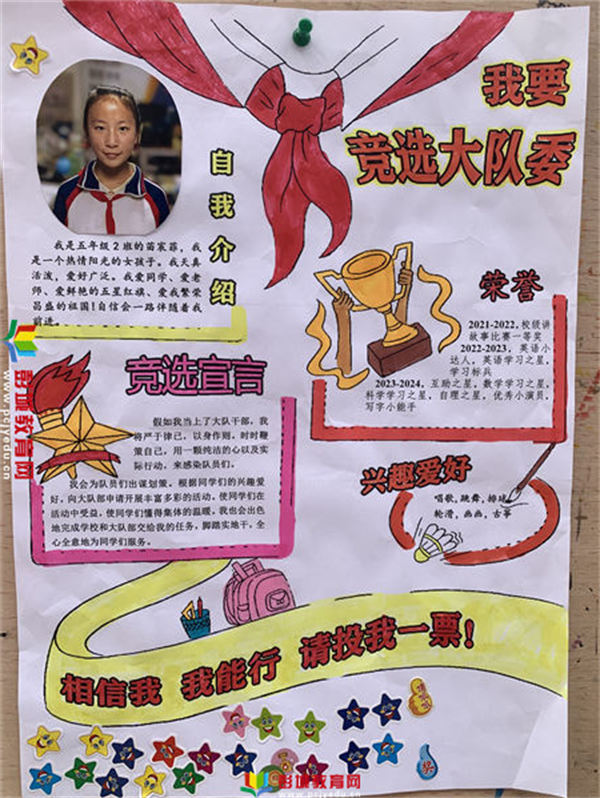 我要
竞选大队委
自我介绍
我是五年级2班的苗家菲，我
是一个热情阳光的女孩子。我天真
活泼，爱好广泛。我爱同学、爱老
师、爱鲜艳的五星红旗、爱我繁荣
昌盛的祖国！自信会一路伴随着我
前进。
荣誉
2021-2022，校级讲
故事比赛一等奖
2022-2023，英语小
达人，英语学习之星，
学习标兵
2023-2024，互助之星，数学学习之星，
科学学习之星，自理之星，优秀小演员，
写字小能手
竞选宣言
假如我当上了大队干部，我
将严于律己，以身作则，时时鞭
策自己，用一颗纯洁的心以及实
际行动，来感染队员们。
我会为队员们出谋划策，根据同学们的兴趣爱
好，向大队部申请开展丰富多彩的活动，使同学们在
活动中受益，使同学们懂得集体的温暖，我也会出色
地完成学校和大队部交给我的任务，脚踏实地干，全
心全意地为同学们服务。
兴趣爱好
唱歌，跳舞，排球
轮滑，画画，古筝
相信我 我能行 请投我一票！
奖
彭城教育网
www.pcjyedu.cn
彭城教育网
www.pcjyedu.cn